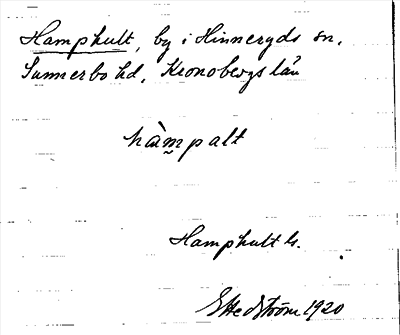 Hamphult, by i Hinneryds sn.
Sunnerbo hd, Kronobergs län
hàmpalt
Hamphult h.
1920